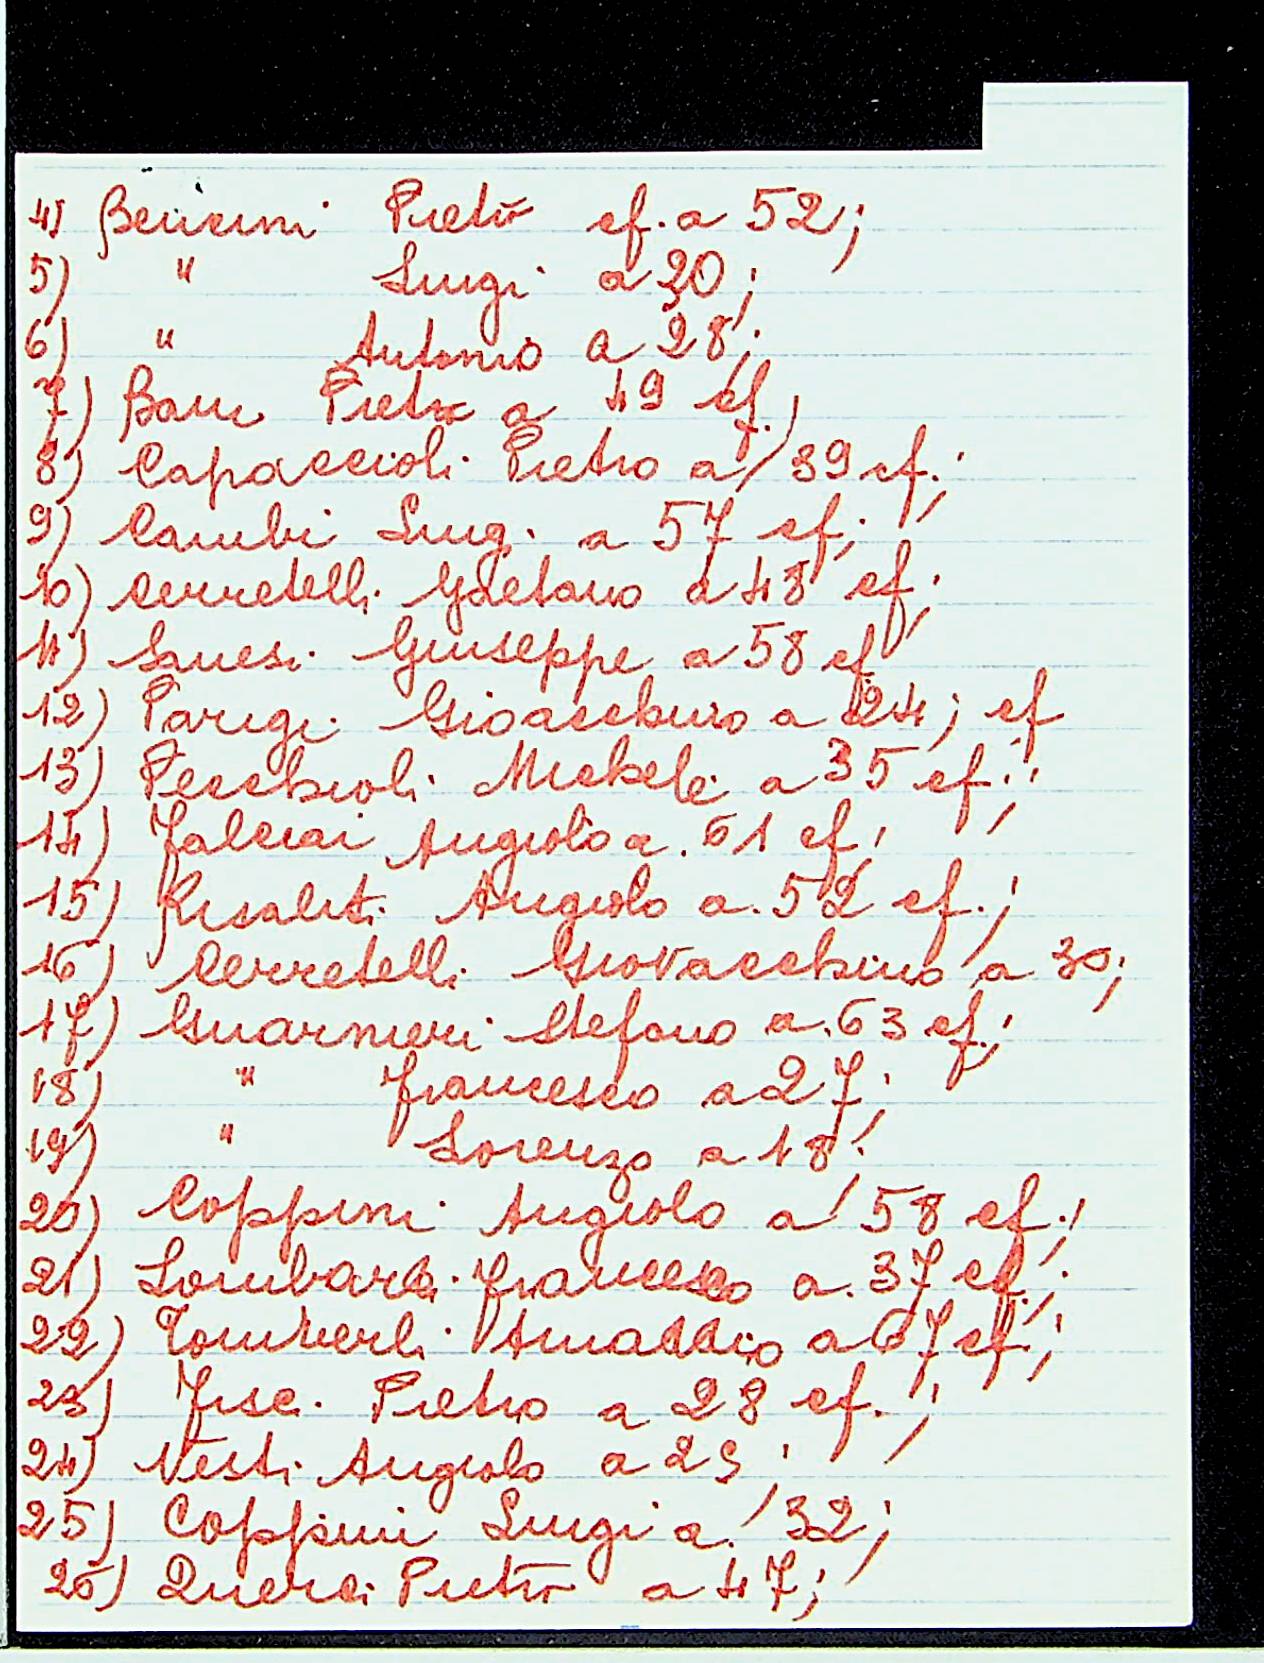 4) Bencini Pietro cf. a 52;
5) " Luigi a 20;
6) " Antonio a 28;
7) Pietro a 49 cf.;
8) Capaccioli Pietro a 39 cf.;
9) Cambi Luig. a 57 cf;
10) Cerretelli Gaetano a 48 cf;
11) Sanesi Giuseppe a 58 cf
12) Parigi Gioacchino a 24; cf
13) Pecchioli Michele a 35 cf.;
14) Falciai Angiolo a. 61 cf;
15) Risaliti Angiolo a. 52 cf.;
16) Cerretelli Giovacchino a 30;
17) Guarnieri Stefano a. 63 cf.;
18) " Francesco a 27;
19) " Lorenzo a 18;
20) Coppini Angiolo a 58 cf.;
21) Lombardi Francesco a. 37 cf.;
22) Tomberli Amaddio a 67 cf.;
23) Pietro a 28 cf. ;
24) Nesti Angiolo a 23;
25) Coppini Luigi a. 32;
26) Querci Pietro a 47;